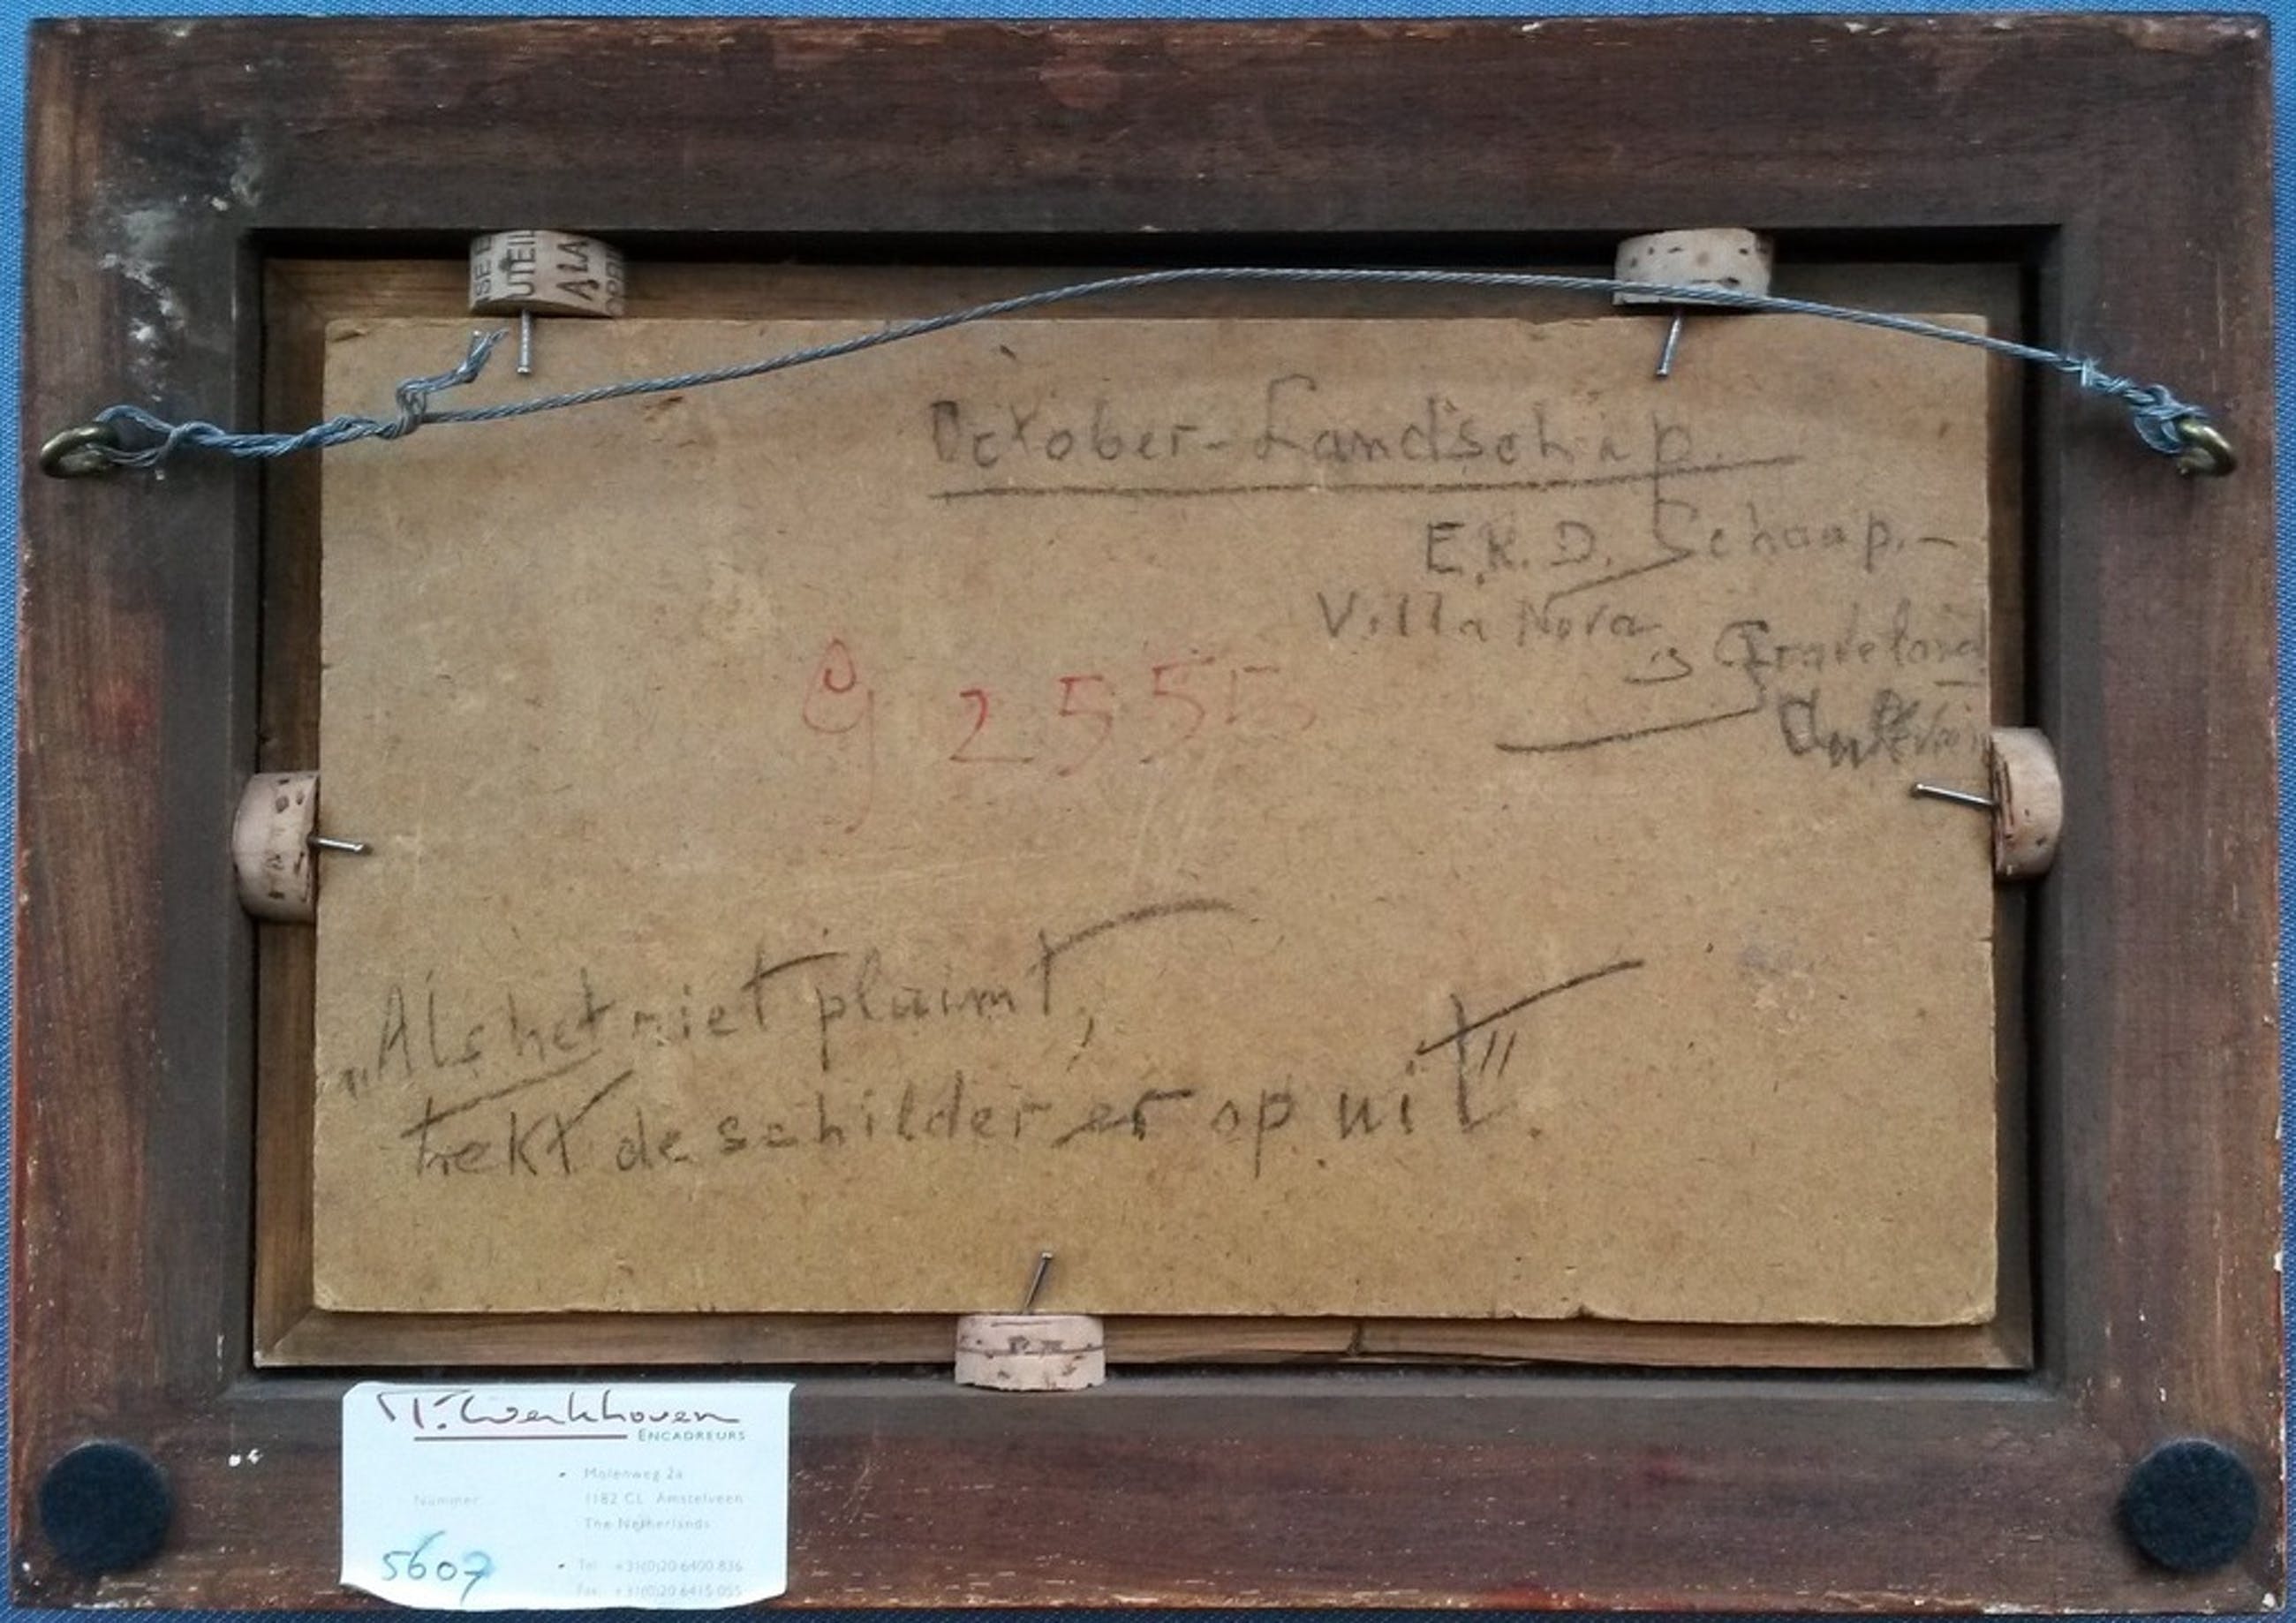 SE TE
UTEIL
ALA
October-Landschap.
E.K.D. Schaap.-
Villa Nova
's Graveland
g 2555
„Als het niet pluimt,
trekt de schilder er op uit".
T. Werkhoven
ENCADREURS
Molenweg 2a
Nummer 1182 CL Amstelveen
The Netherlands
5607 Tel. +31(0)20 6400 836
Fax. +31(0)20 6415 055